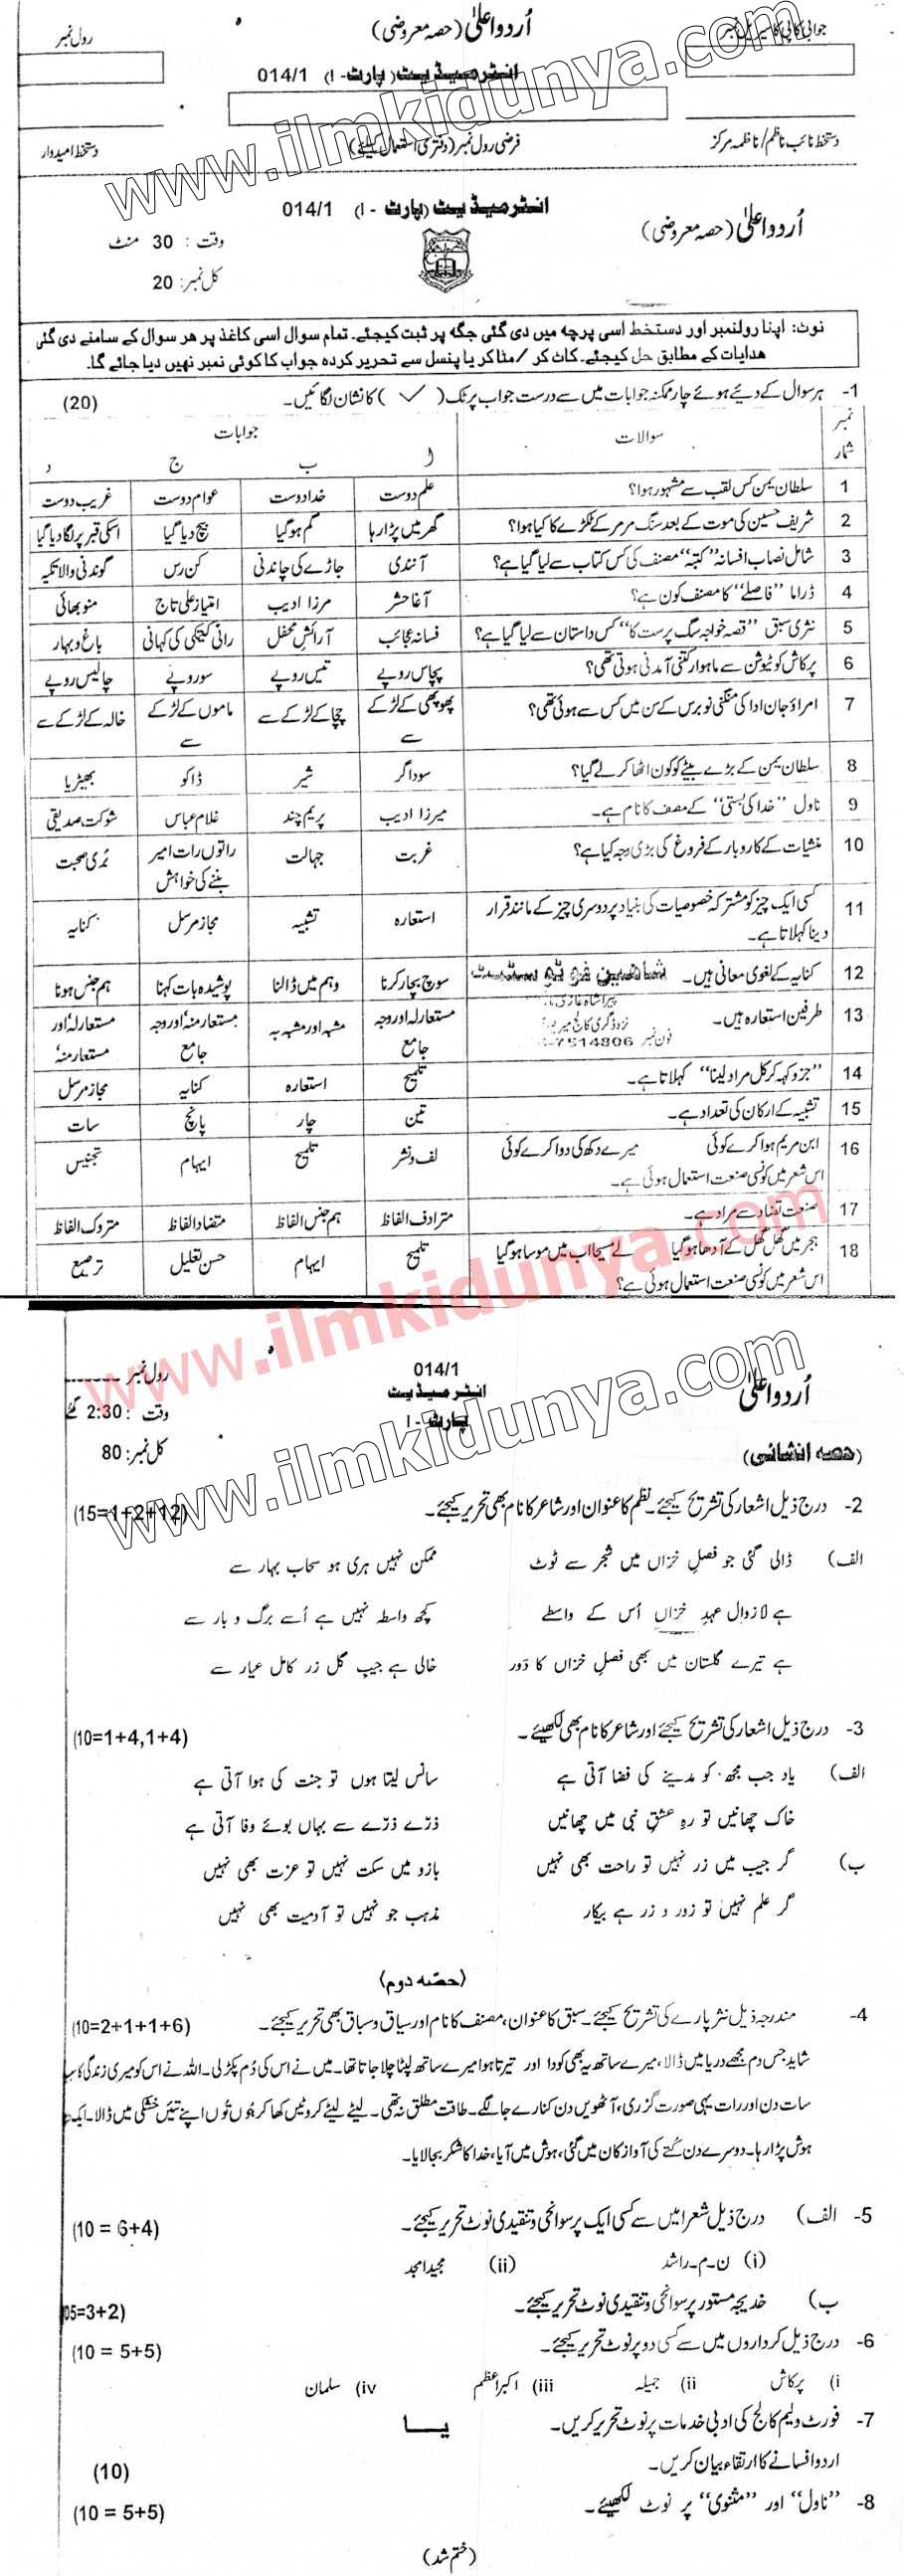 جوابی کاپی کا سیریل نمبر
اُردو اعلیٰ (حصہ معروضی)
رول نمبر
انٹرمیڈیٹ (پارٹ - I) 014/1
دستخط نائب ناظم/ناظمہ مرکز
فرضی رول نمبر (دفتری استعمال کیلئے)
دستخط امیدوار
www.ilmkidunya.com
انٹرمیڈیٹ (پارٹ - I) 014/1
اُردو اعلیٰ (حصہ معروضی)
وقت : 30 منٹ
کل نمبر: 20
نوٹ: اپنا رولنمبر اور دستخط اسی پرچہ میں دی گئی جگہ پر ثبت کیجئے۔ تمام سوال اسی کاغذ پر ہر سوال کے سامنے دی گئی
ہدایات کے مطابق حل کیجئے۔ کاٹ کر /مٹا کر یا پنسل سے تحریر کردہ جواب کا کوئی نمبر نہیں دیا جائے گا۔
1- ہر سوال کے دیئے ہوئے چار ممکنہ جوابات میں سے درست جواب پر ٹک (✓) کا نشان لگائیں۔ (20)
نمبر شمار سوالات جوابات
ا ب ج د
1 سلطان یمن کس لقب سے مشہور ہوا؟ علم دوست خدا دوست عوام دوست غریب دوست
2 شریف حسین کی موت کے بعد سنگ مرمر کے ٹکڑے کا کیا ہوا؟ گھر میں پڑا رہا گم ہو گیا بیچ دیا گیا اسکی قبر پر لگا دیا گیا
3 شامل نصاب افسانہ "کتبہ" مصنف کی کس کتاب سے لیا گیا ہے؟ آنندی جاڑے کی چاندنی کن رس گوندنی والا تکیہ
4 ڈراما "فاصلے" کا مصنف کون ہے؟ آغا حشر مرزا ادیب امتیاز علی تاج منو بھائی
5 نثری سبق "قصہ خواجہ سگ پرست کا" کس داستان سے لیا گیا ہے؟ فسانہ عجائب آرائش محفل رانی کیتکی کی کہانی باغ و بہار
6 پرکاش کو ٹیوشن سے ماہوار کتنی آمدنی ہوتی تھی؟ پچاس روپے تیس روپے سو روپے چالیس روپے
7 امراؤ جان ادا کی منگنی نو برس کے سن میں کس سے ہوئی تھی؟ پھوپھی کے لڑکے سے چچا کے لڑکے سے ماموں کے لڑکے سے خالہ کے لڑکے سے
8 سلطان یمن کے بڑے بیٹے کو کون اٹھا کر لے گیا؟ سوداگر شیر ڈاکو بھیڑیا
9 ناول "خدا کی بستی" کے مصنف کا نام ہے۔ میرزا ادیب پریم چند غلام عباس شوکت صدیقی
10 منشیات کے کاروبار کے فروغ کی بڑی وجہ کیا ہے؟ غربت جہالت راتوں رات امیر بننے کی خواہش بُری صحبت
11 کسی ایک چیز کو مشترکہ خصوصیات کی بنیاد پر دوسری چیز کے مانند قرار
دینا کہلاتا ہے۔ استعارہ تشبیہ مجاز مرسل کنایہ
12 کنایہ کے لغوی معانی ہیں۔ سوچ بچار کرنا وہم میں ڈالنا پوشیدہ بات کہنا ہم جنس ہونا
شاہین فوٹو سٹیٹ
13 طرفین استعارہ ہیں۔ مستعار لہ اور وجہ جامع مشبہ اور مشبہ بہ مستعار منہ اور وجہ جامع مستعار لہ اور مستعار منہ
نزد ڈگری کالج
فون نمبر 7514806
14 "جزو کہہ کر کل مراد لینا" کہلاتا ہے۔ تلمیح استعارہ کنایہ مجاز مرسل
15 تشبیہ کے ارکان کی تعداد ہے۔ تین چار پانچ سات
16 ابن مریم ہوا کرے کوئی میرے دکھ کی دوا کرے کوئی
اس شعر میں کونسی صنعت استعمال ہوئی ہے۔ لف و نشر تلمیح ایہام تجنیس
17 صنعت تضاد سے مراد ہے۔ مترادف الفاظ ہم جنس الفاظ متضاد الفاظ متروک الفاظ
18 ہجر میں گھل گھل کے آدھا ہو گیا لے مسیحا اب میں موسا ہو گیا
اس شعر میں کونسی صنعت استعمال ہوئی ہے؟ تلمیح ایہام حسن تعلیل ترصیع
www.ilmkidunya.com
اُردو اعلیٰ
014/1
انٹرمیڈیٹ
پارٹ - I
رول نمبر
وقت : 2:30 گھنٹے
کل نمبر: 80
www.ilmkidunya.com
(حصہ انشائی)
2- درج ذیل اشعار کی تشریح کیجئے۔ نظم کا عنوان اور شاعر کا نام بھی تحریر کیجئے۔ (15=1+2+12)
الف) ڈالی گئی جو فصلِ خزاں میں شجر سے ٹوٹ ممکن نہیں ہری ہو سحاب بہار سے
ہے لازوال عہدِ خزاں اُس کے واسطے کچھ واسطہ نہیں ہے اُسے برگ و بار سے
ہے تیرے گلستان میں بھی فصلِ خزاں کا دور خالی ہے جیبِ گل زر کامل عیار سے
3- درج ذیل اشعار کی تشریح کیجئے اور شاعر کا نام بھی لکھیئے۔ (10=1+4,1+4)
الف) یاد جب مجھ کو مدینے کی فضا آتی ہے سانس لیتا ہوں تو جنت کی ہوا آتی ہے
خاک چھانیں تو رہِ عشقِ نبی میں چھانیں ذرّے ذرّے سے یہاں بوئے وفا آتی ہے
ب) گر جیب میں زر نہیں تو راحت بھی نہیں بازو میں سکت نہیں تو عزت بھی نہیں
گر علم نہیں تو زور و زر ہے بیکار مذہب جو نہیں تو آدمیت بھی نہیں
(حصّہ دوم)
4- مندرجہ ذیل نثر پارے کی تشریح کیجئے۔ سبق کا عنوان، مصنف کا نام اور سیاق و سباق بھی تحریر کیجئے۔ (10=2+1+1+6)
شاید جس دم مجھے دریا میں ڈالا، میرے ساتھ یہ بھی کودا اور تیرتا ہوا میرے ساتھ لپٹا چلا جاتا تھا۔ میں نے اس کی دُم پکڑ لی۔ اللہ نے اس کو میری زندگی کا
سات دن اور رات یہی صورت گزری، آٹھویں دن کنارے جا لگے۔ طاقت مطلق نہ تھی۔ لیٹے لیٹے کروٹیں کھا کر جُوں تُوں اپنے تئیں خشکی میں ڈالا۔ ایک
ہوش پڑا رہا۔ دوسرے دن کُتے کی آواز کان میں گئی، ہوش میں آیا، خدا کا شکر بجا لایا۔
5- الف) درج ذیل شعرا میں سے کسی ایک پر سوانحی و تنقیدی نوٹ تحریر کیجئے۔ (10 = 6+4)
(i) ن-م-راشد (ii) مجید امجد
ب) خدیجہ مستور پر سوانحی و تنقیدی نوٹ تحریر کیجئے۔ 05=3+2)
6- درج ذیل کرداروں میں سے کسی دو پر نوٹ تحریر کیجئے۔ (10 = 5+5)
i) پرکاش ii) جمیلہ iii) اکبر اعظم iv) سلمان
7- فورٹ ولیم کالج کی ادبی خدمات پر نوٹ تحریر کریں۔
یا
اردو افسانے کا ارتقاء بیان کریں۔ (10)
8- "ناول" اور "مثنوی" پر نوٹ لکھیئے۔ (10 = 5+5)
(ختم شد)